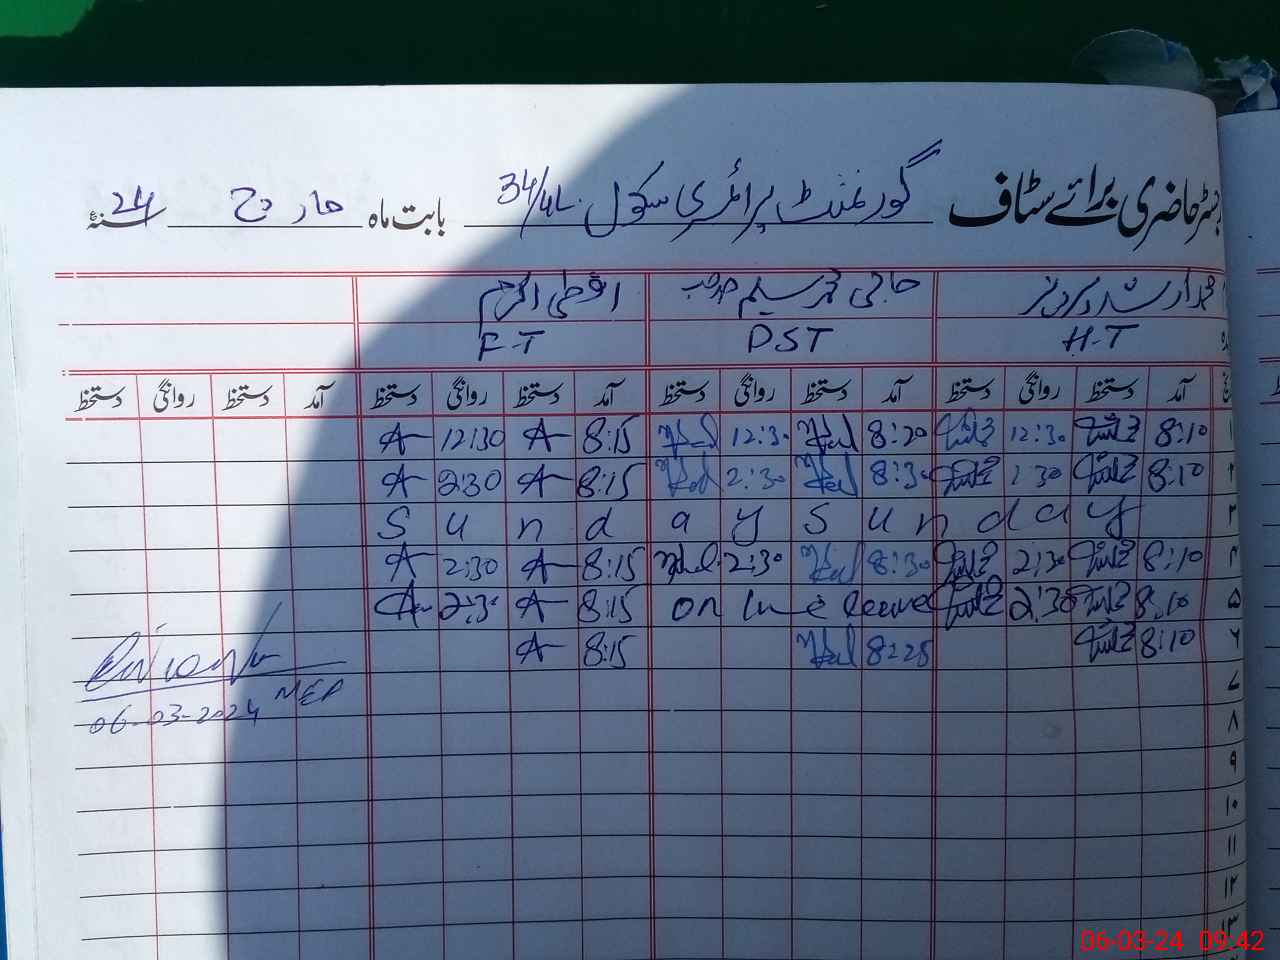 رجسٹر حاضری برائے سٹاف گورنمنٹ پرائمری سکول 34/4L بابت ماہ مارچ 24 سنہٴ
محمد ارشد پرویز حاجی محمد سلیم صاحب اقصٰی اکرم
H-T PST F-T
آمد دستخط روانگی دستخط آمد دستخط روانگی دستخط آمد دستخط روانگی دستخط آمد دستخط روانگی دستخط
۱ 8:10 12:30 8:20 12:30 8:15 A 12:30 A
۲ 8:10 1:30 8:30 2:30 8:15 A 2:30 A
۳ Sunday Sunday
۴ 8:10 2:30 8:30 2:30 8:15 A 2:30 A
۵ 8:10 2:30 on leave 8:15 A 2:30
۶ 8:10 8:25 8:15 A
۷
MEA
06-03-2024
۸
۹
۱۰
۱۱
۱۲
۱۳
06-03-24 09:42